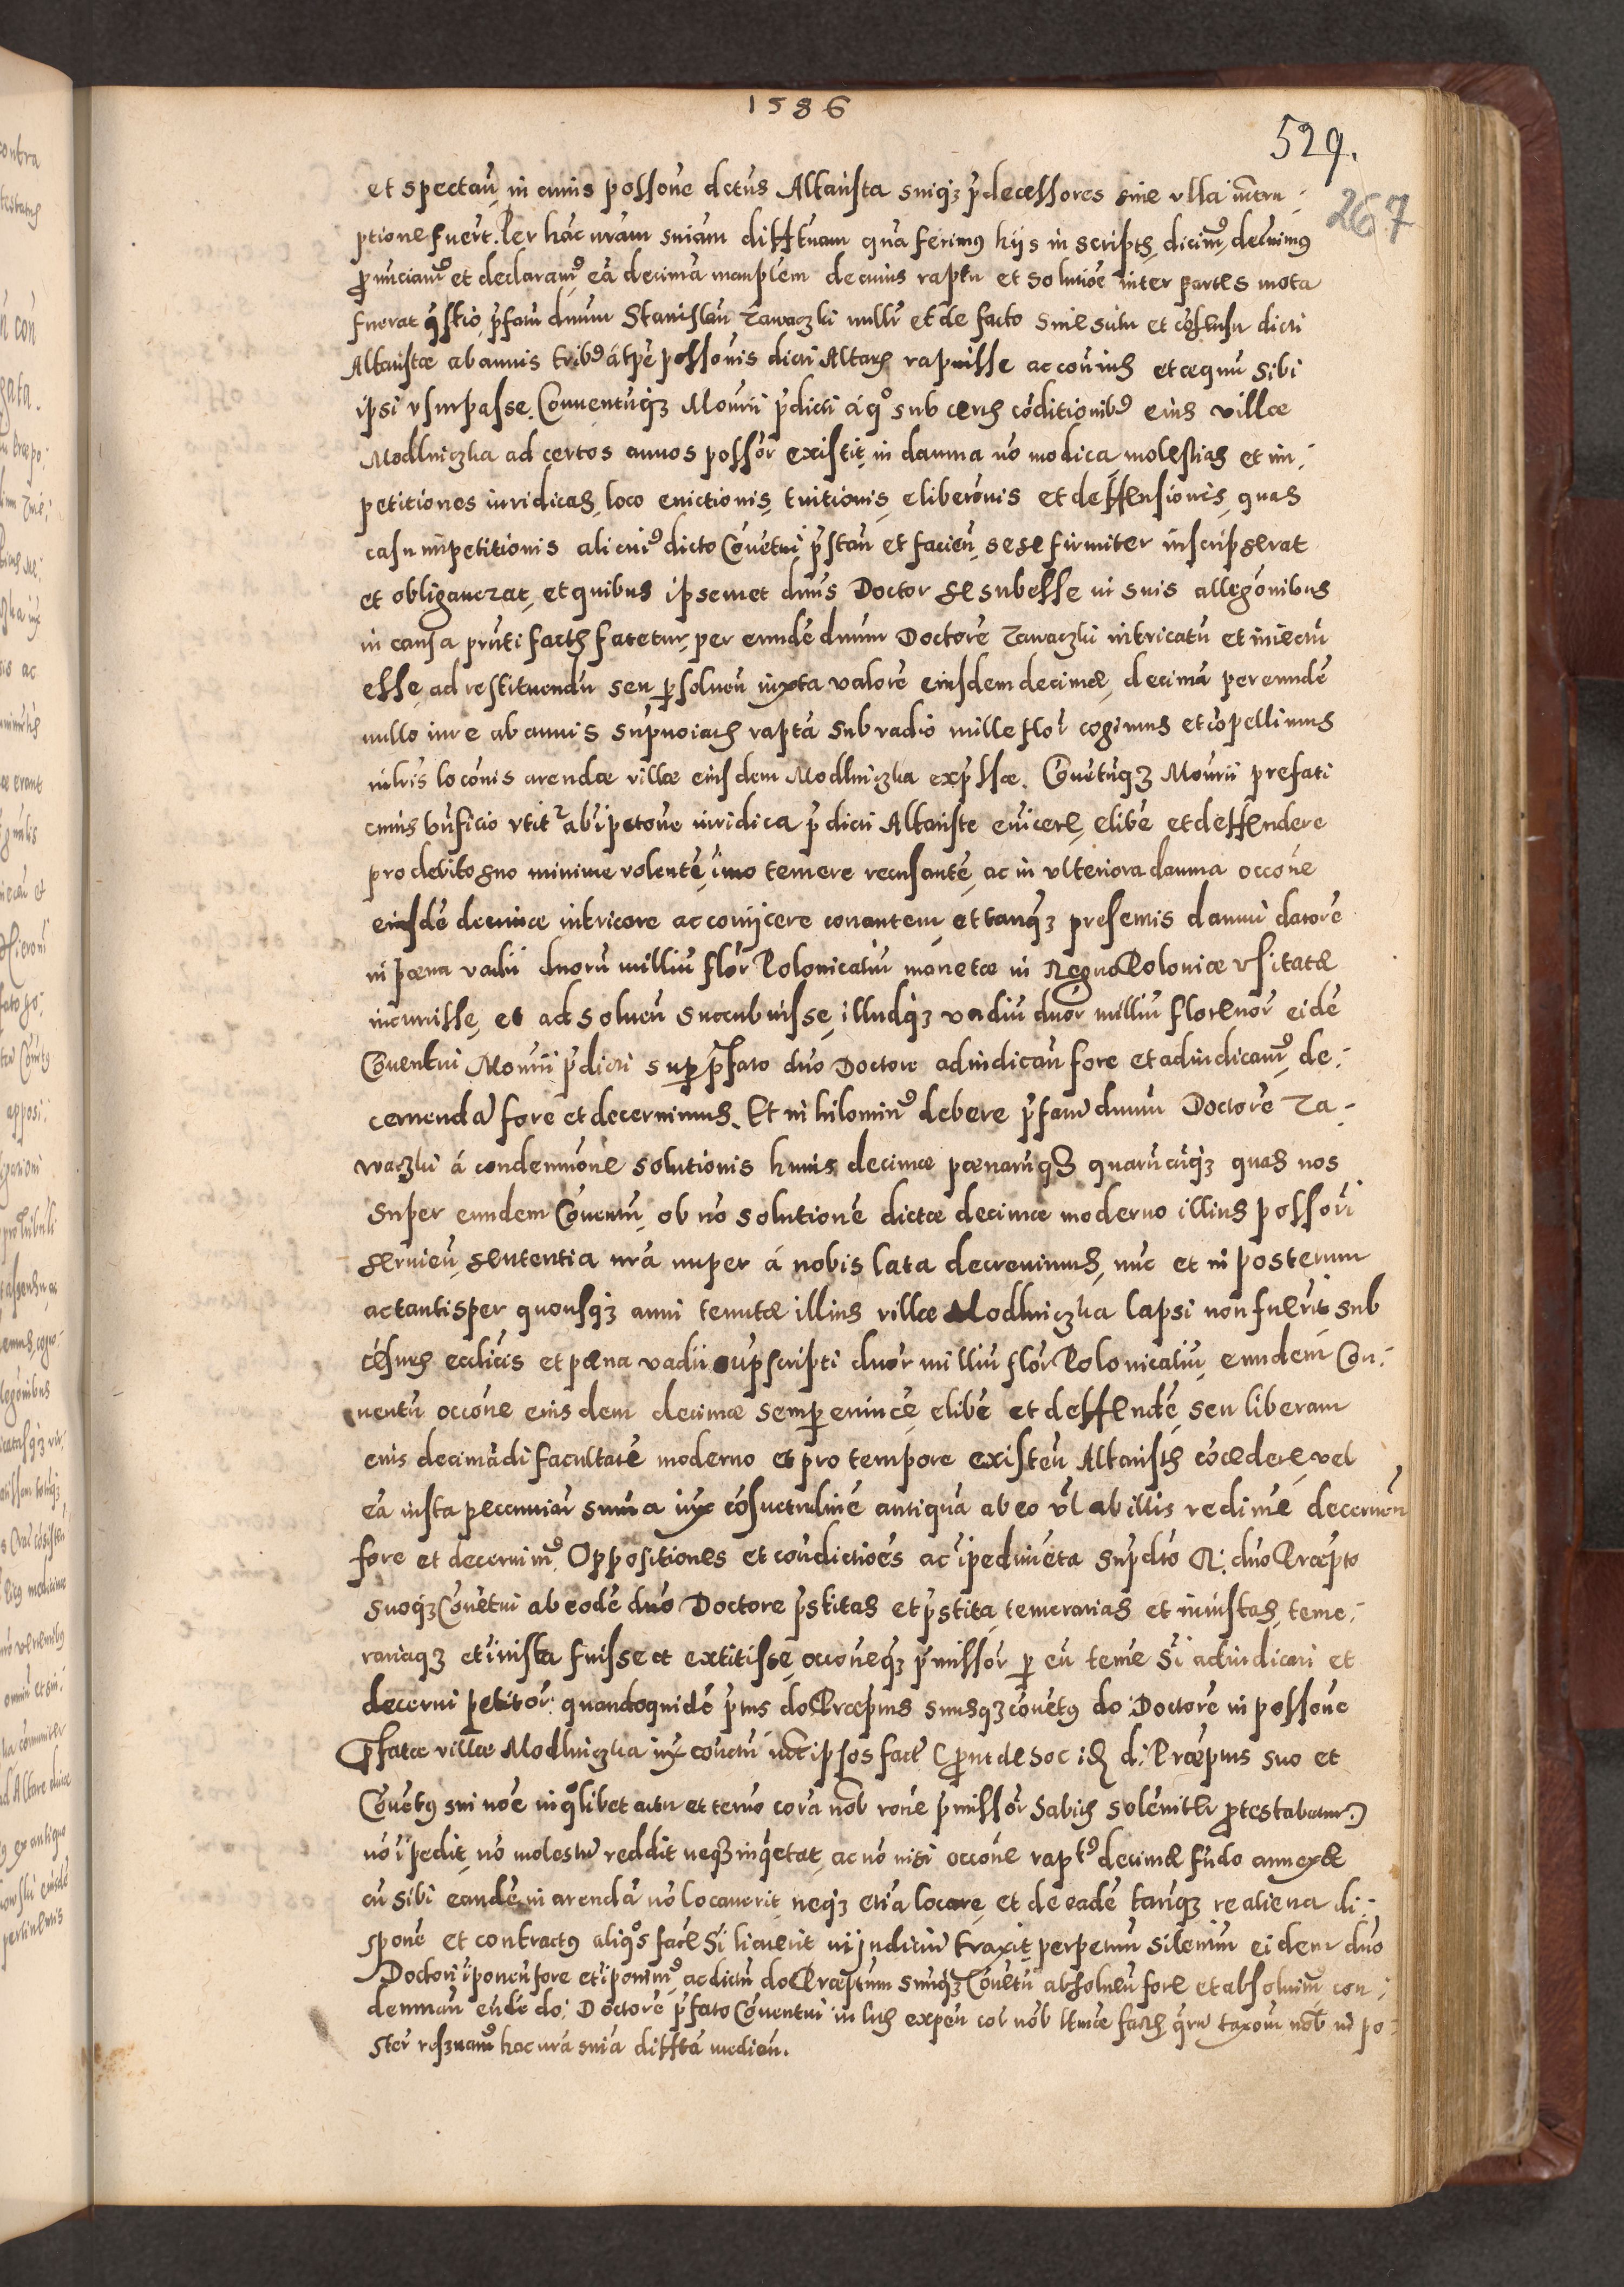 1586
529.
267
et spectan̄, in cuius possone dctus Altarista suiq₃ p̄decessores sine vlla interru-
ptione fuert. Per hāc nrām sniām diffttiuam quā ferimꝰ hijs in scriptis, dicimꝰ, decnimꝰ
ꝓnunciamꝰ et declaramꝰ, eā decimā manplem de cuius raptu et solutiōe inter partes mota
fuerat q̄stio, p̄fatū dnum Stanislaū Zawaczki nullr̄ et de facto sine scitu et cōsensu dicti
Altaristæ ab annis tribꝰ a tpē possonis dicti Altaris rapuisse ac contra ius et æquū sibi
ipsi vsurpasse. Conuentūq₃ Mourii p̄dicti a quo sub certis cōditionibꝰ eius villæ
Modlniczka ad certos annos possor existit, in damna nō modica, molestias et im-
petitiones iuridicas, loco euictionis, tuitionis, eliberōnis et deffensionis, quas
casu impetitionis alicuiꝰ dicto Cōuetui p̄stan̄ et facien̄, sese firmiter inscripserat
et obligauerat, et quibus ipsemet dnus Doctor se subesse in suis allegōnibus
in causa pn̄ti factis fatetur, per eundē dnum Doctorē Zawaczki intricatū et iniectū
esse, ad restituendū seu psoluen̄ iuxta valorē eiusdem decimæ, decimā per eundē
nullo iure ab annis sup̄noiatis raptā sub vadio mille flor cogimus et cōpellimus
in lris locōnis arendæ villæ eiusdem Modlniczka exp̄ssæ. Cōuētūq₃ Mourii prefati
cuius bn̄ficio vtit̄ ab ipetone iuridica p̄dicti Altariste euicere, elibē et deffendere
pro debito suo minime volentē, imo temere recusantē, ac in vlteriora damna occōne
eiusdē decimæ intricare ac conijcere conantem, et tanq₃ presentis damni datorē
in pæna vadii duorū milliū flor Polonicaliū monetæ in Regno Poloniæ vsitatæ
incurrisse, et ad soluen̄ succubuisse, illudq₃ vadiū duor milliū florenor eidē
Cōuentui Mourii p̄dicti sup p̄fato dno Doctore adiudican̄ fore et adiudicamꝰ, de-
cernendū fore et decernimus. Et nihilominꝰ debere p̄fatū dnum Doctorē Za-
waczki á condemnōne solutionis huius decimæ pænarūq₃ quarūcūq₃ quas nos
super eundem Cōuentū, ob nō solutionē dictæ decimæ moderno illius possori
seruien̄, sententia nrā nuper á nobis lata decreuimus, nuc et in posterum
ac tantisper quousq₃ anni tenutæ illius villæ Modlniczka lapsi non fuerit sub
cēsuris ecclicis et pæna vadii supscripti duor milliū flor Polonicaliū, eundem Con-
uentū occōne eiusdem decimæ semp euincē, elibē et deffendē, seu liberam
eius decimādi facultatē moderno et pro tempore existen̄ Altaristis cōcedere, vel
eā iusta pecuniar summa iux cōsuetudinē antiquā ab eo vl ab illis redimē decernen̄
fore et decernimꝰ. Oppositiones et condictiōes ac ipedimēta supdto R: dno Præpto
suoq₃ Cōuētui ab eodē dno Doctore p̄stitas et p̄stita, temerarias et iniustas, teme-
rariaq₃ et iniusta fuisse et extitisse, occōneq₃ p̄missor p eū temē sī adiudicari et
decerni petitor: quandoquidē p̄tus do Præptus suusq₃ cōuētꝰ do: Doctorē in possone
p̄fatæ villæ Modlniczka iux contrū int ipsos factū (ꝓut de hoc id d: Præptus suo et
Cōuētꝰ sui noē in qolibet actu et termo corā nob rone p̄missor habitis soleniter ꝓtestabatur.)
nō ipedit, nō molestū reddit neq₃ inqetat, ac nō nisi occōne raptꝰ decimæ fūdo annexæ
cū sibi eandē in arendā nō locauerit, neq₃ etiā locare, et de eadē tanq₃ re aliena di-
sponē et contractꝰ aliqos facē sī licuerit in iudiciū traxit, perpetuū silentiū eidem dno
Doctori iponen̄ fore et iponimꝰ, ac dictū do Præptum suūq₃ Cōuētū absoluen̄ fore et absoluimꝰ con-
demnan̄ eūdē do: Doctorē p̄fato Cōuentui in litis expen̄ cor nob ltime factis qru taxom nob in po-
ster reseruamꝰ hac nrā sniā diffttā median̄.